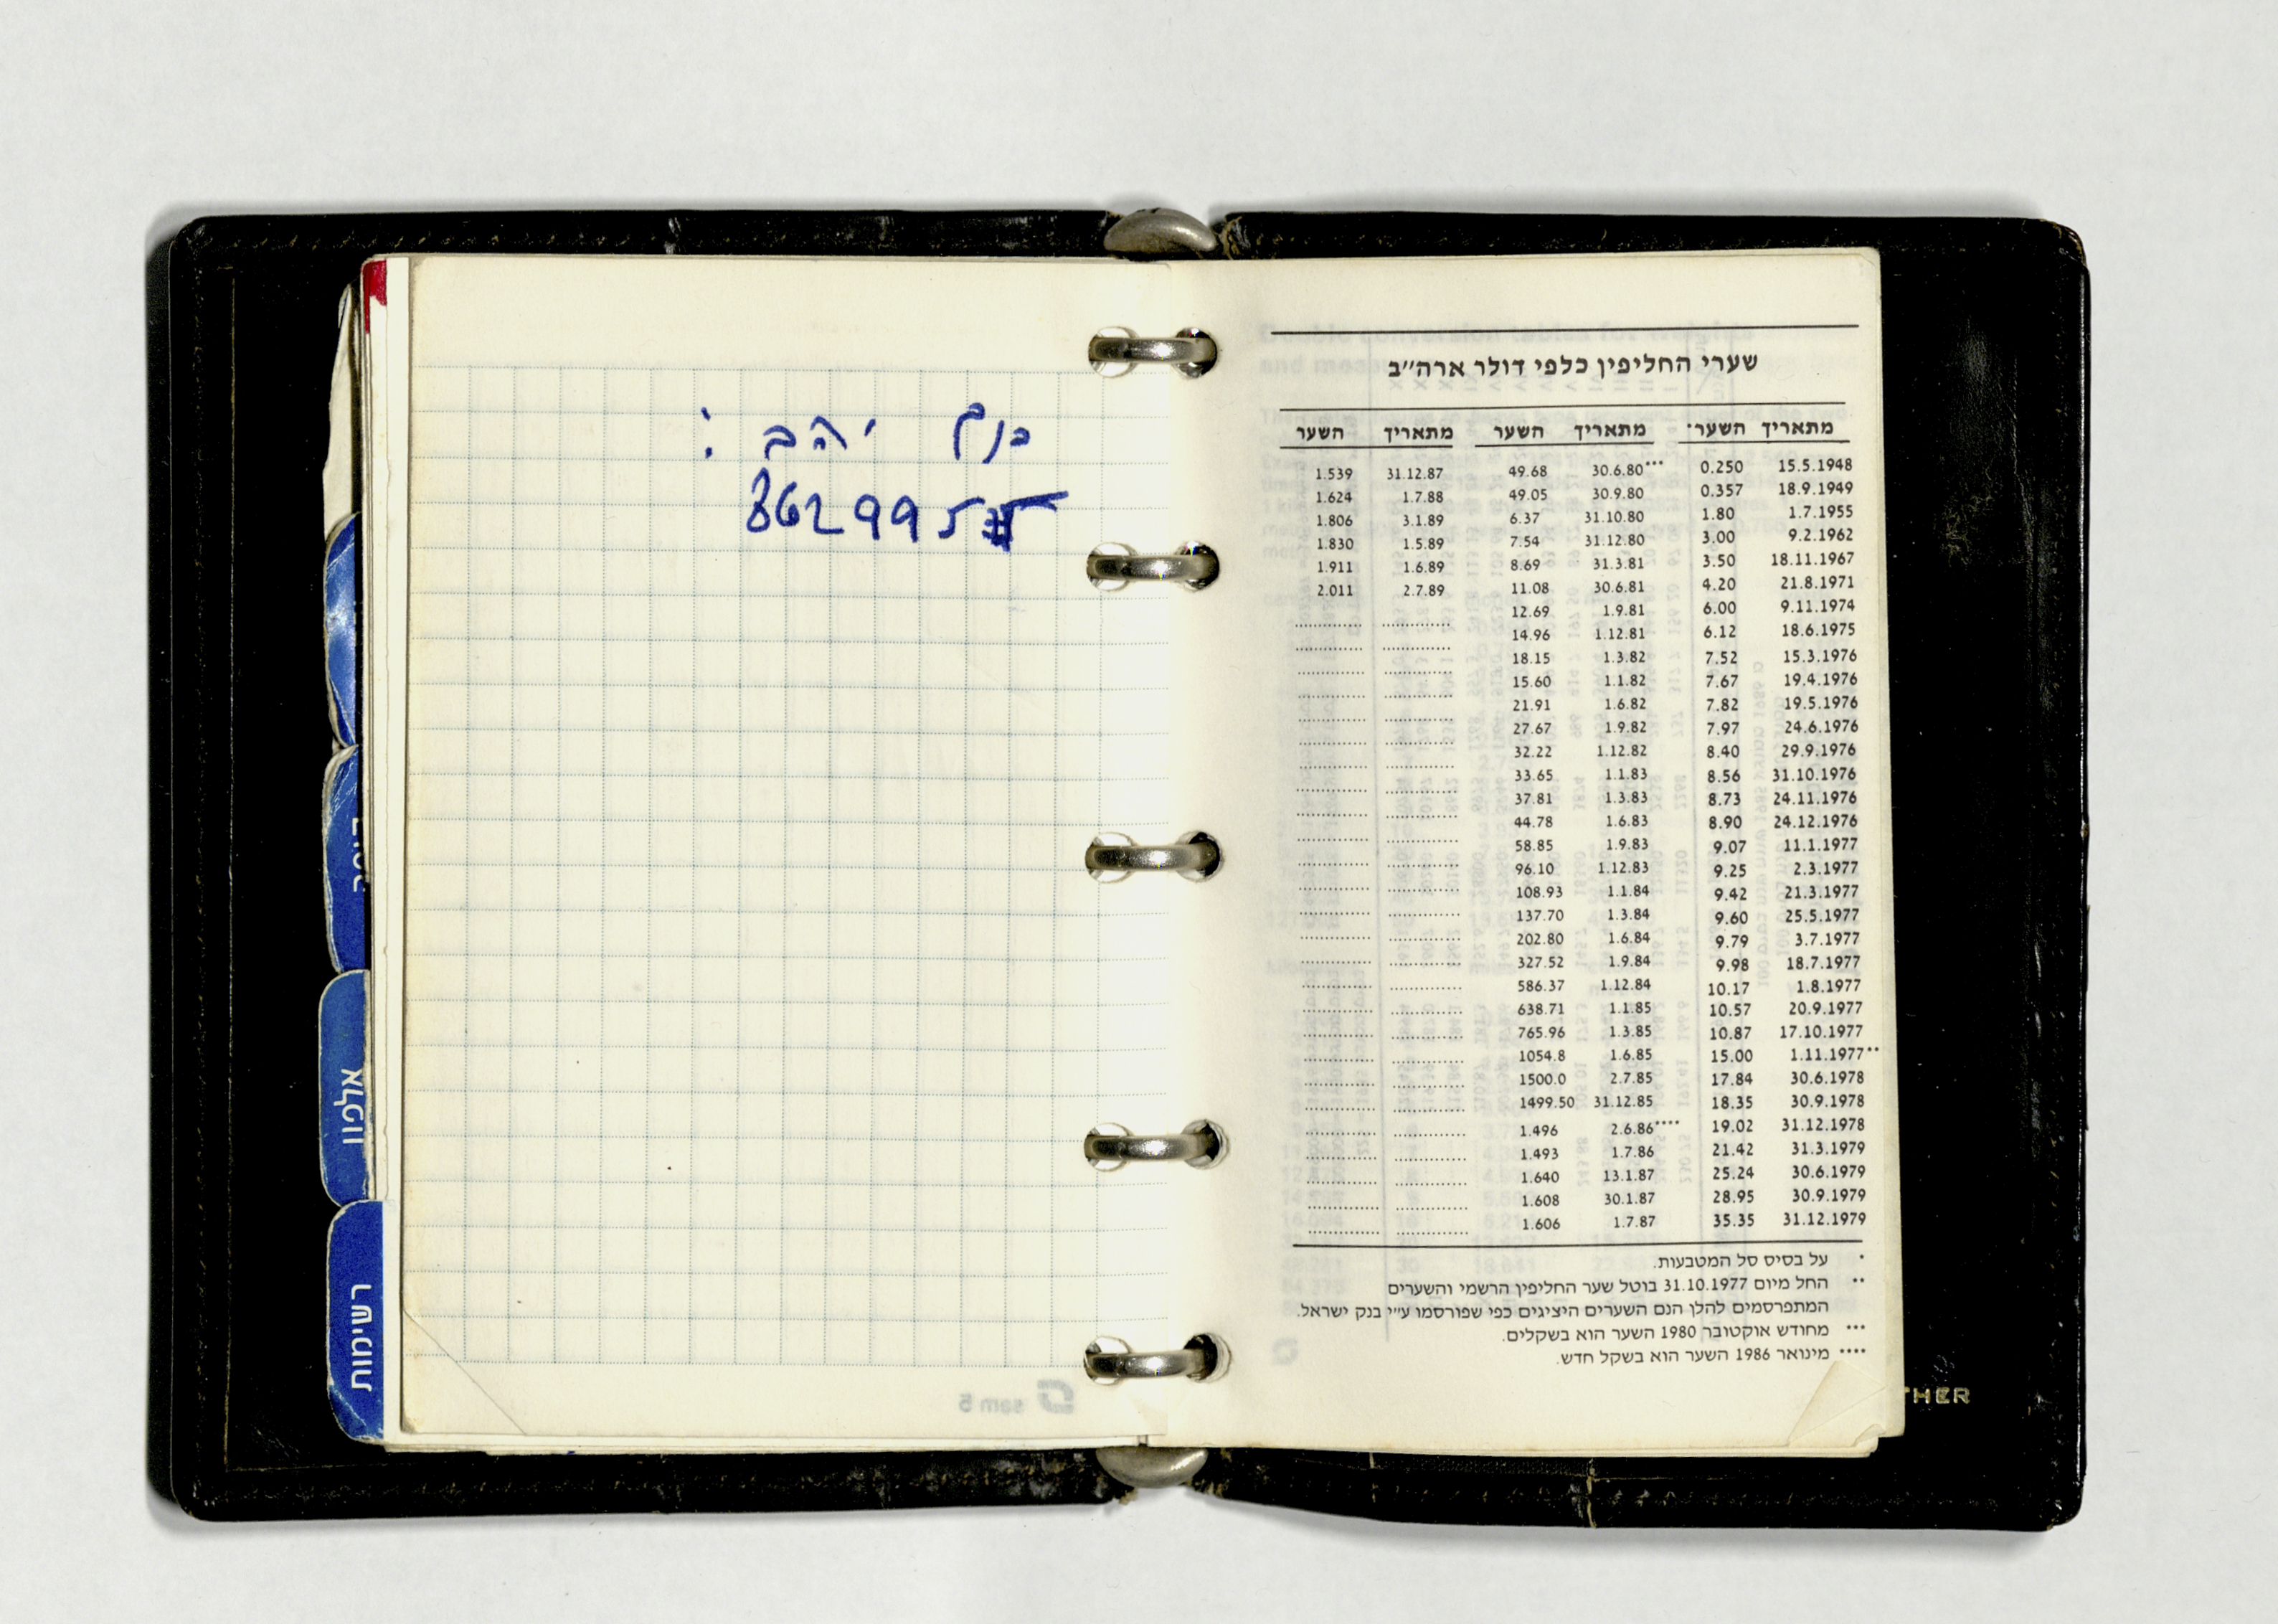 כנף יהב :
8629955
שערי החליפין כלפי דולר ארה״ב
מתאריך השער* מתאריך השער מתאריך השער
15.5.1948 0.250 30.6.80*** 49.68 31.12.87 1.539
18.9.1949 0.357 30.9.80 49.05 1.7.88 1.624
1.7.1955 1.80 31.10.80 6.37 3.1.89 1.806
9.2.1962 3.00 31.12.80 7.54 1.5.89 1.830
18.11.1967 3.50 31.3.81 8.69 1.6.89 1.911
21.8.1971 4.20 30.6.81 11.08 2.7.89 2.011
9.11.1974 6.00 1.9.81 12.69
18.6.1975 6.12 1.12.81 14.96
15.3.1976 7.52 1.3.82 18.15
19.4.1976 7.67 1.1.82 15.60
19.5.1976 7.82 1.6.82 21.91
24.6.1976 7.97 1.9.82 27.67
29.9.1976 8.40 1.12.82 32.22
31.10.1976 8.56 1.1.83 33.65
24.11.1976 8.73 1.3.83 37.81
24.12.1976 8.90 1.6.83 44.78
11.1.1977 9.07 1.9.83 58.85
2.3.1977 9.25 1.12.83 96.10
21.3.1977 9.42 1.1.84 108.93
25.5.1977 9.60 1.3.84 137.70
3.7.1977 9.79 1.6.84 202.80
18.7.1977 9.98 1.9.84 327.52
1.8.1977 10.17 1.12.84 586.37
20.9.1977 10.57 1.1.85 638.71
17.10.1977 10.87 1.3.85 765.96
1.11.1977** 15.00 1.6.85 1054.8
30.6.1978 17.84 2.7.85 1500.0
30.9.1978 18.35 31.12.85 1499.50
31.12.1978 19.02 2.6.86**** 1.496
31.3.1979 21.42 1.7.86 1.493
30.6.1979 25.24 13.1.87 1.640
30.9.1979 28.95 30.1.87 1.608
31.12.1979 35.35 1.7.87 1.606
* על בסיס סל המטבעות.
** החל מיום 31.10.1977 בוטל שער החליפין הרשמי והשערים
המתפרסמים להלן הנם השערים היציגים כפי שפורסמו ע״י בנק ישראל.
*** מחודש אוקטובר 1980 השער הוא בשקלים.
**** מינואר 1986 השער הוא בשקל חדש.
אלפון
רשימות
sam 5
THER